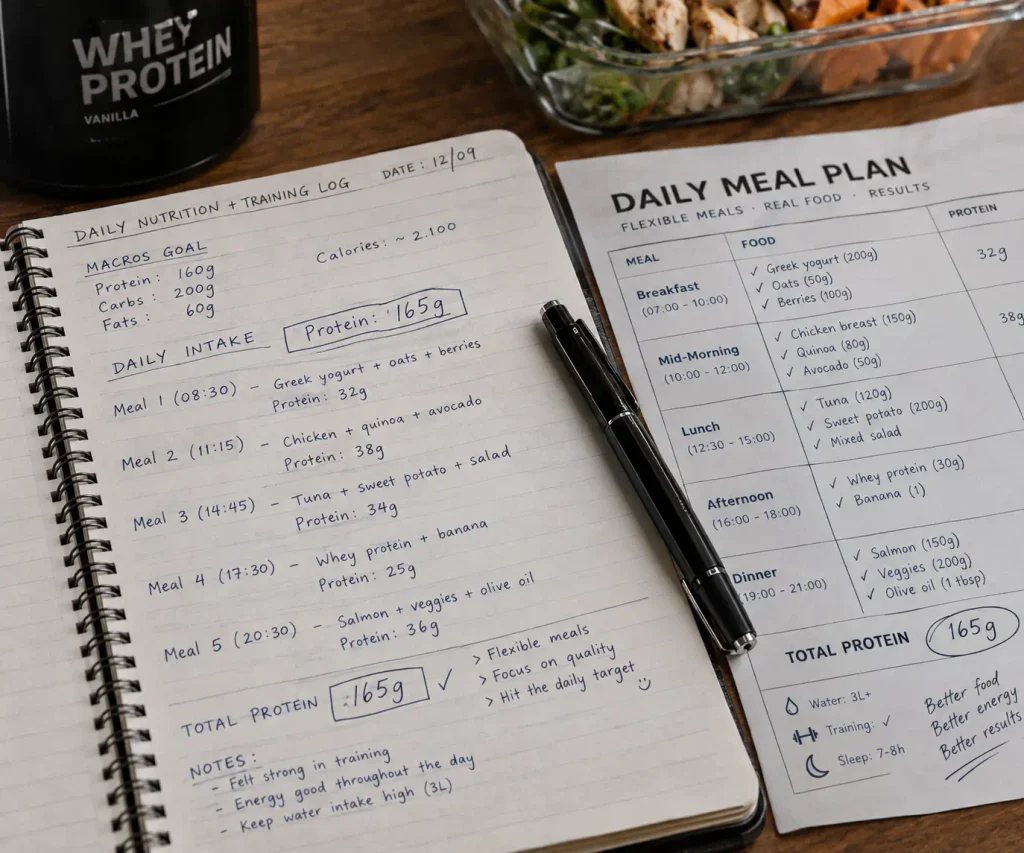 WHEY
PROTEIN
VANILLA
DAILY NUTRITION + TRAINING LOG DATE: 12/09
MACROS GOAL
Protein: 160g
Carbs: 200g
Fats: 60g
Calories: ~ 2.100
DAILY INTAKE
Protein: 165g
Meal 1 (08:30) – Greek yogurt + oats + berries
Protein: 32g
Meal 2 (11:15) – Chicken + quinoa + avocado
Protein: 38g
Meal 3 (14:45) – Tuna + sweet potato + salad
Protein: 34g
Meal 4 (17:30) – Whey protein + banana
Protein: 25g
Meal 5 (20:30) – Salmon + veggies + olive oil
Protein: 36g
TOTAL PROTEIN :165g ✓
> Flexible meals
> Focus on quality
> Hit the daily target
NOTES:
- Felt strong in training
- Energy good throughout the day
- Keep water intake high (3L)
DAILY MEAL PLAN
FLEXIBLE MEALS · REAL FOOD · RESULTS
MEAL FOOD PROTEIN
Breakfast
(07:00 - 10:00)
✓ Greek yogurt (200g)
✓ Oats (50g)
✓ Berries (100g)
32g
Mid-Morning
(10:00 - 12:00)
✓ Chicken breast (150g)
✓ Quinoa (80g)
✓ Avocado (50g)
38g
Lunch
(12:30 - 15:00)
✓ Tuna (120g)
✓ Sweet potato (200g)
✓ Mixed salad
Afternoon
(16:00 - 18:00)
✓ Whey protein (30g)
✓ Banana (1)
Dinner
(19:00 - 21:00)
✓ Salmon (150g)
✓ Veggies (200g)
✓ Olive oil (1 tbsp)
TOTAL PROTEIN 165g
Water: 3L+
Training: ✓
Sleep: 7-8h
Better food
Better energy
Better results